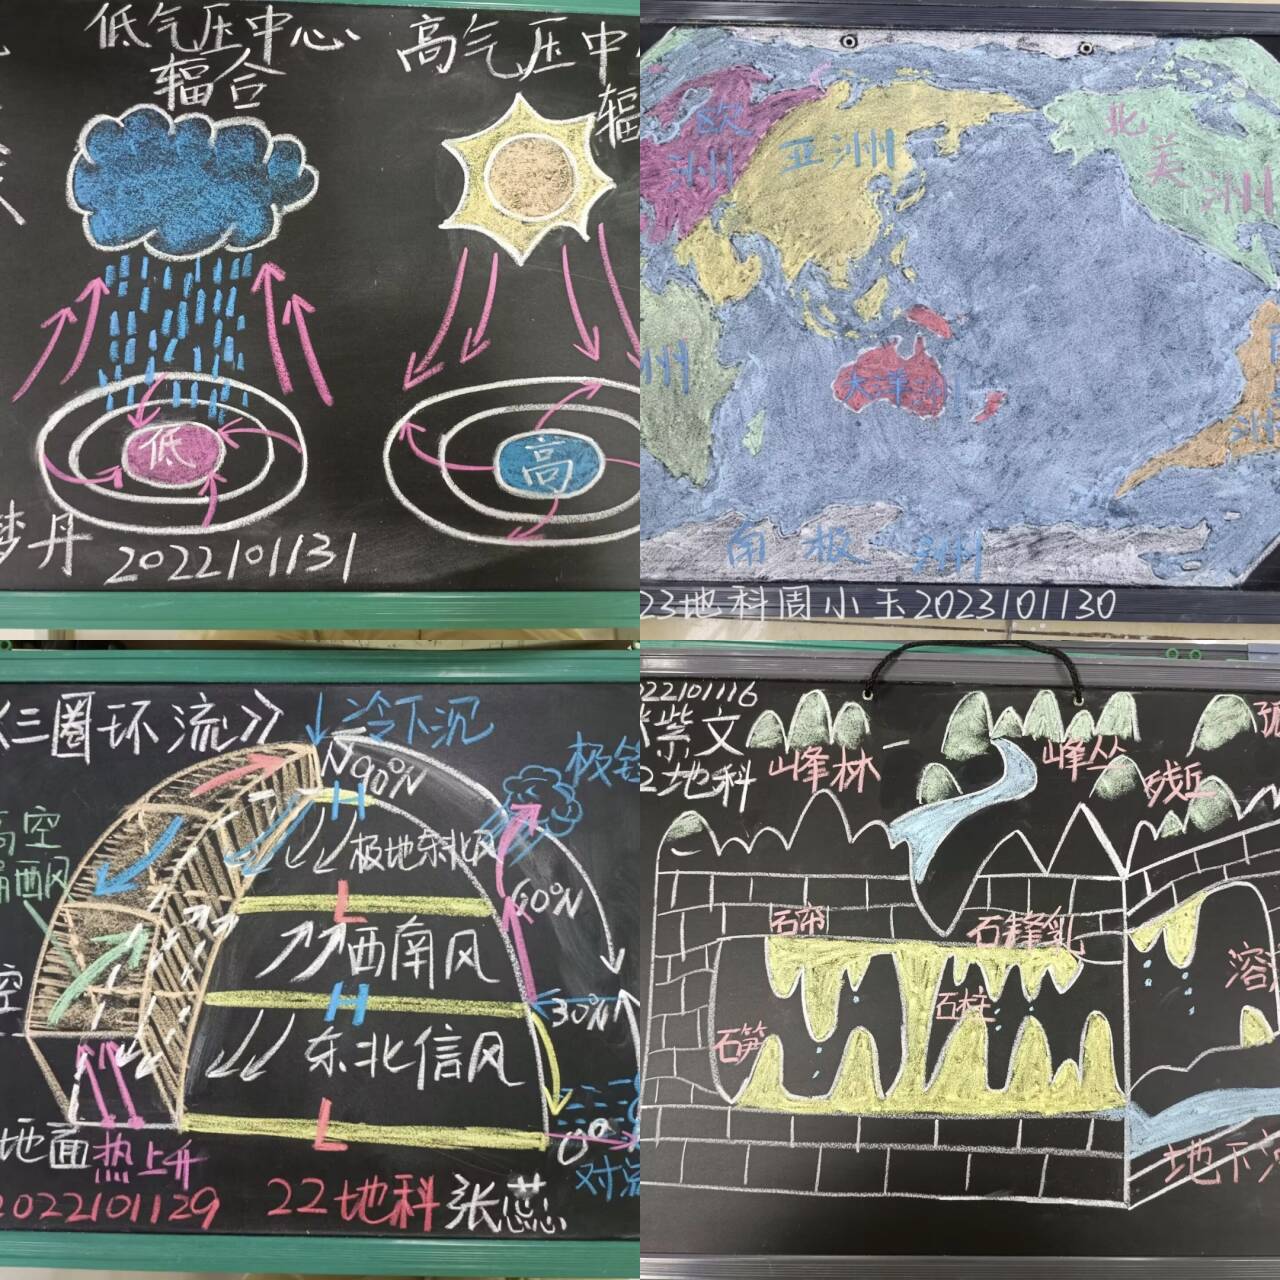 低气压中心
辐合
高气压中
辐
低
高
梦丹
2022101131
欧
洲
亚洲
北
美
洲
洲
大洋洲
洲
南极洲
23地科周小玉2023101130
《三圈环流》
冷下沉
N90°N
H
极地东北风
60°N
高空
西风
L
西南风
空
H
30°N
东北信风
L
0°
地面
热上升
2022101129
22地科
张蕊
022101116
紫文
2地科
峰林
峰丛
残丘
石帘
石钟乳
石柱
石笋
溶
地下河